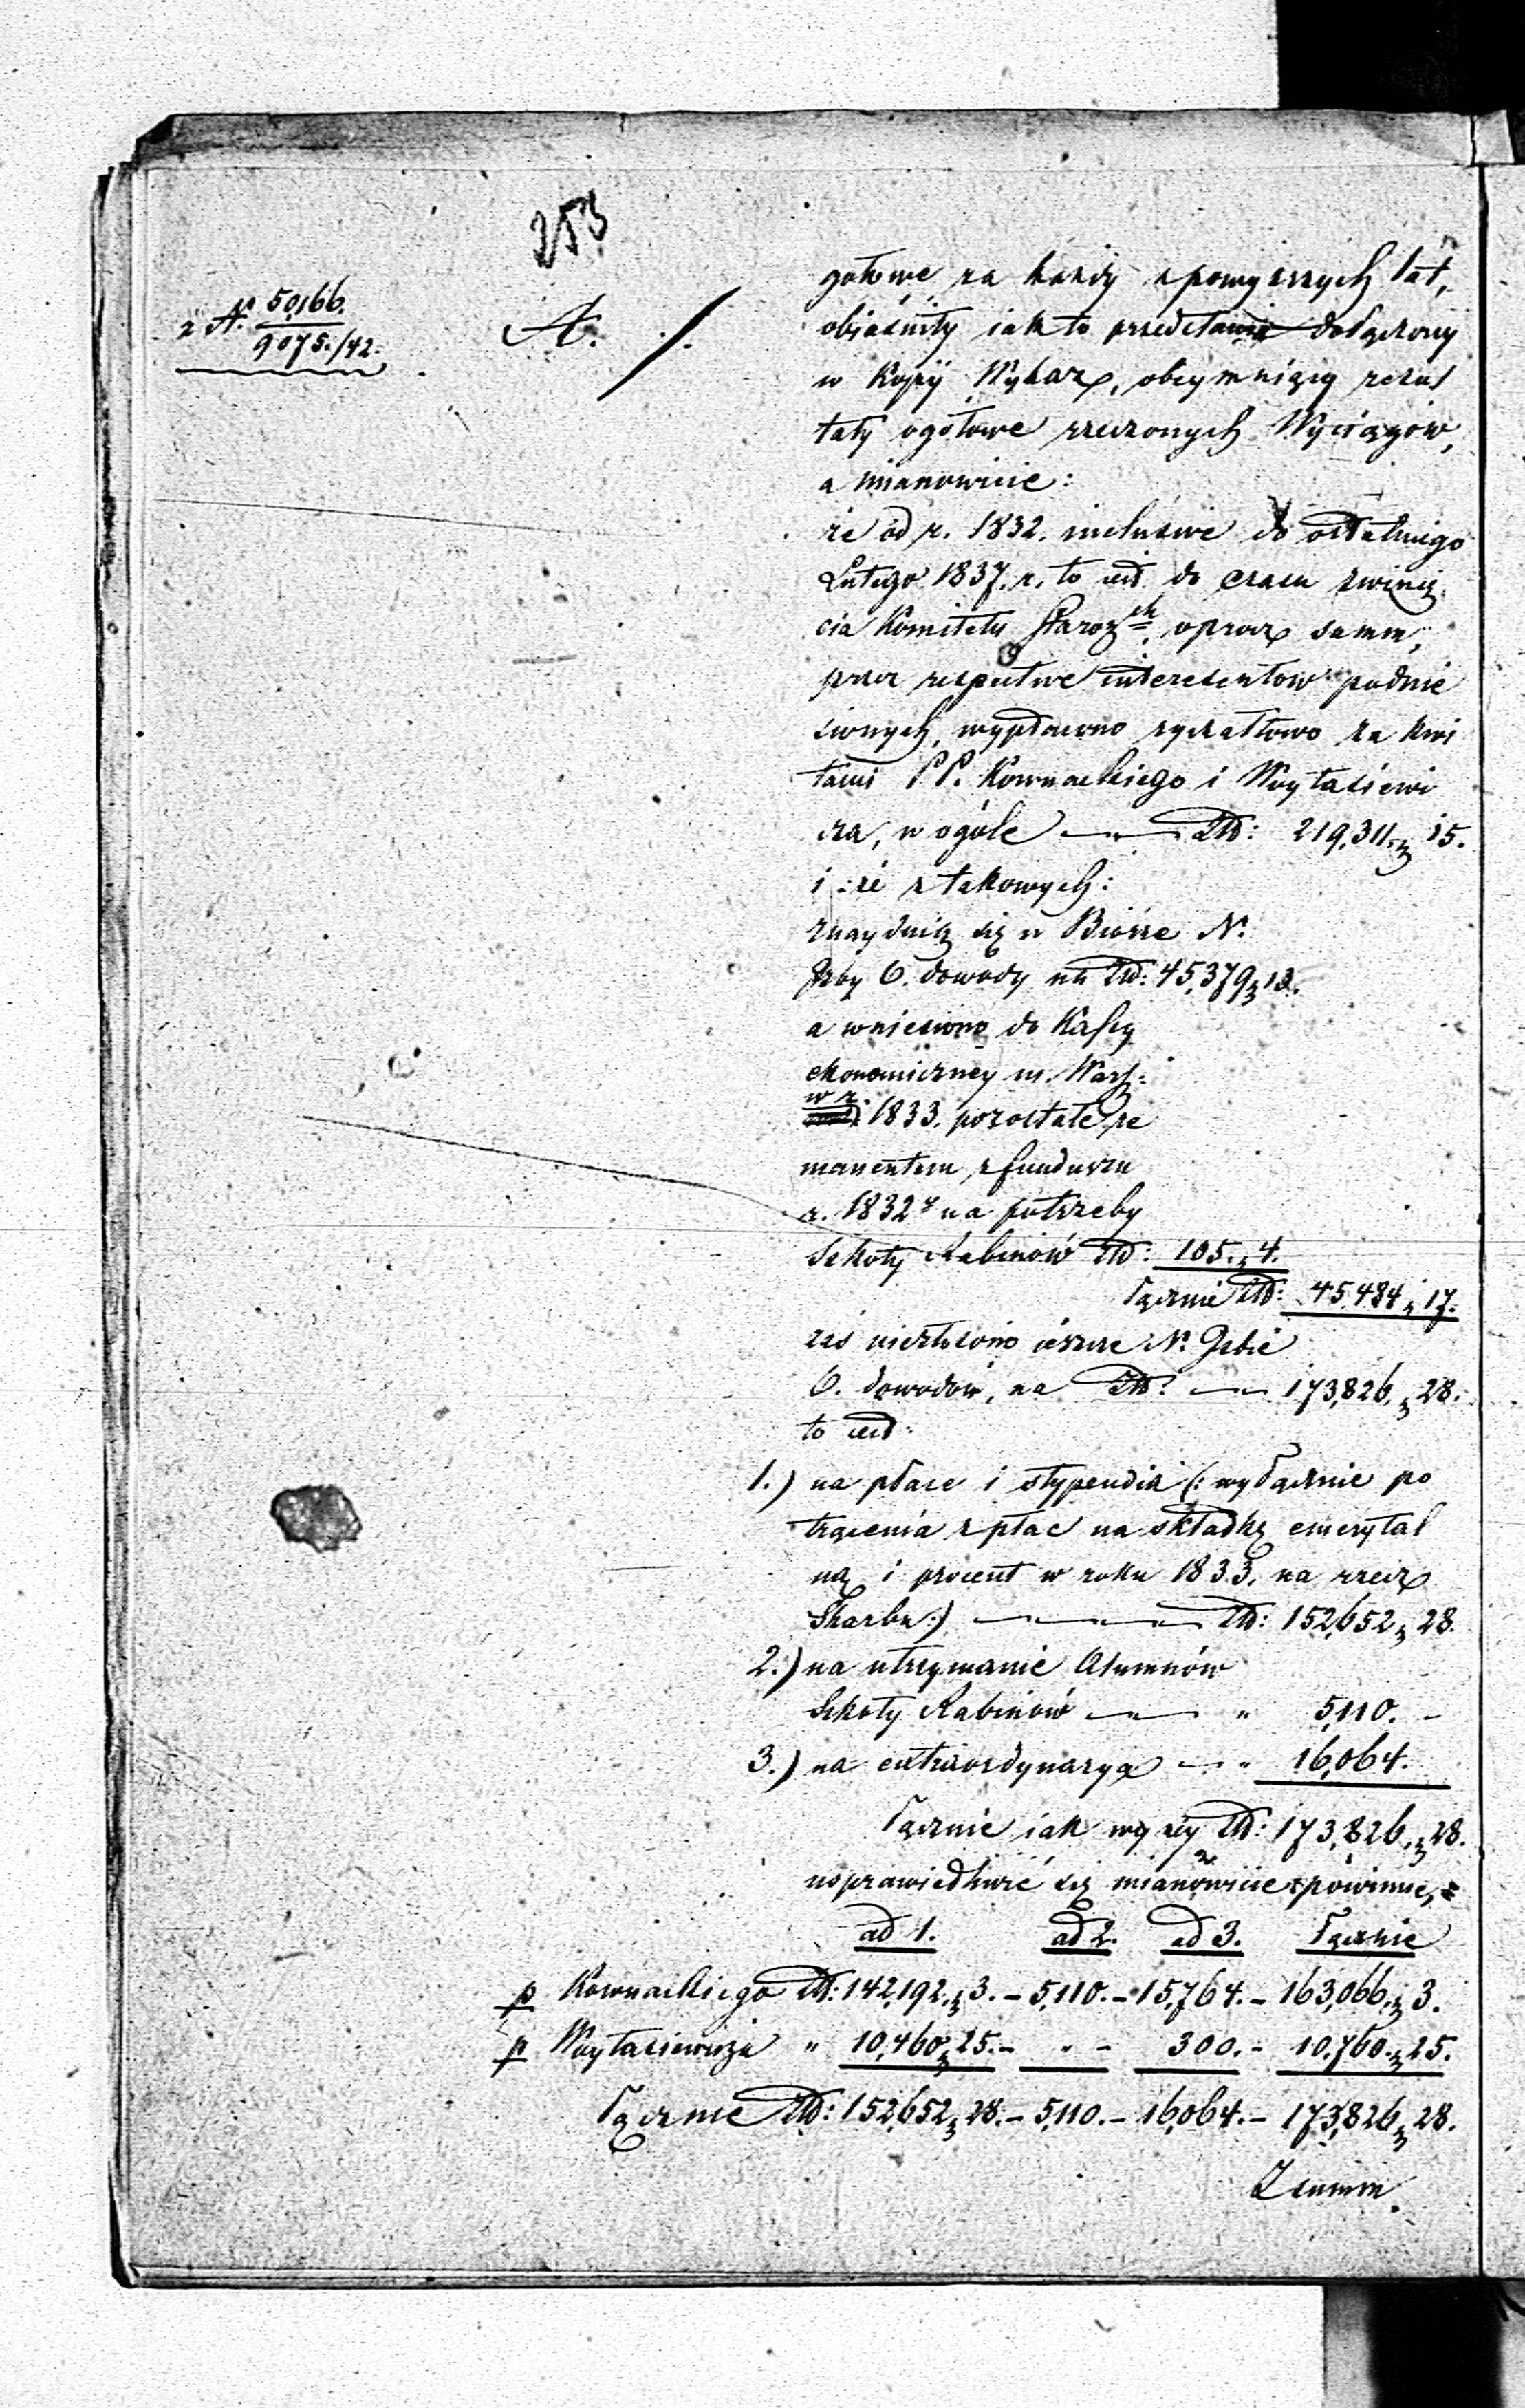 253
z N. 50166.
9075./42.
A. ./.
gółowe za każdy z powyższych lat,
objaśniły iak to przedstawia dołączony
w Kopÿ Wykaz, obeymuiący rezul
taty ogółowe rzeczonych Wyciągów,
a mianowicie:
że od r. 1832. inclusive do ostatniego
Lutego 1837. r. to iest do czasu zwinię
cia Komitetu Staroz.ch oprócz summ,
przez respective interesentow podnie
sionych, wypłacono ryczałtowo za kwi
tami PP. Kownackiego i Woytasiewi
cza, w ogóle — Złp: 219,311. „ 15.
i że z takowych:
znayduią się w Biórze N.
Izby O. dowody na Złp: 45,379 „ 13.
a wniesiono do Kassy
ekonomiczney m. Warsz:
w r. 1833. pozostałe re
manentem z funduszu
r. 1832. na potrzeby
Szkoły Rabinów Złp: 105. „ 4.
łącznie Złp: 45,484 „ 17.
zaś niezłożono ieszcze N. Izbie
O. dowodów, na Złp: — 173,826. „ 28.
to iest:
1.) na płace i stypendia (: wyłącznie po
trącenia z płac na składkę emerytal
ną i procent w roku 1833. na rzecz
Skarbu :) — Złp: 152,652 „ 28.
2.) na utrzymanie Alumnów
Szkoły Rabinów — „ 5,110. –
3.) na extraordynarya — „ 16,064.
łącznie iak wyżey Złp: 173,826. „ 28.
usprawiedliwić się mianowicie powinne,
ad 1. ad 2. ad 3. łącznie
p Kownackiego Złp: 142,192. „ 3. – 5,110. – 15,764. – 163,066. „ 3.
p Woytasiewicza „ 10,460 „ 25. – „ – 300. – 10,760. „ 25.
łącznie Złp: 152,652 „ 28. – 5,110. – 16,064. – 173,826 „ 28.
Z summ